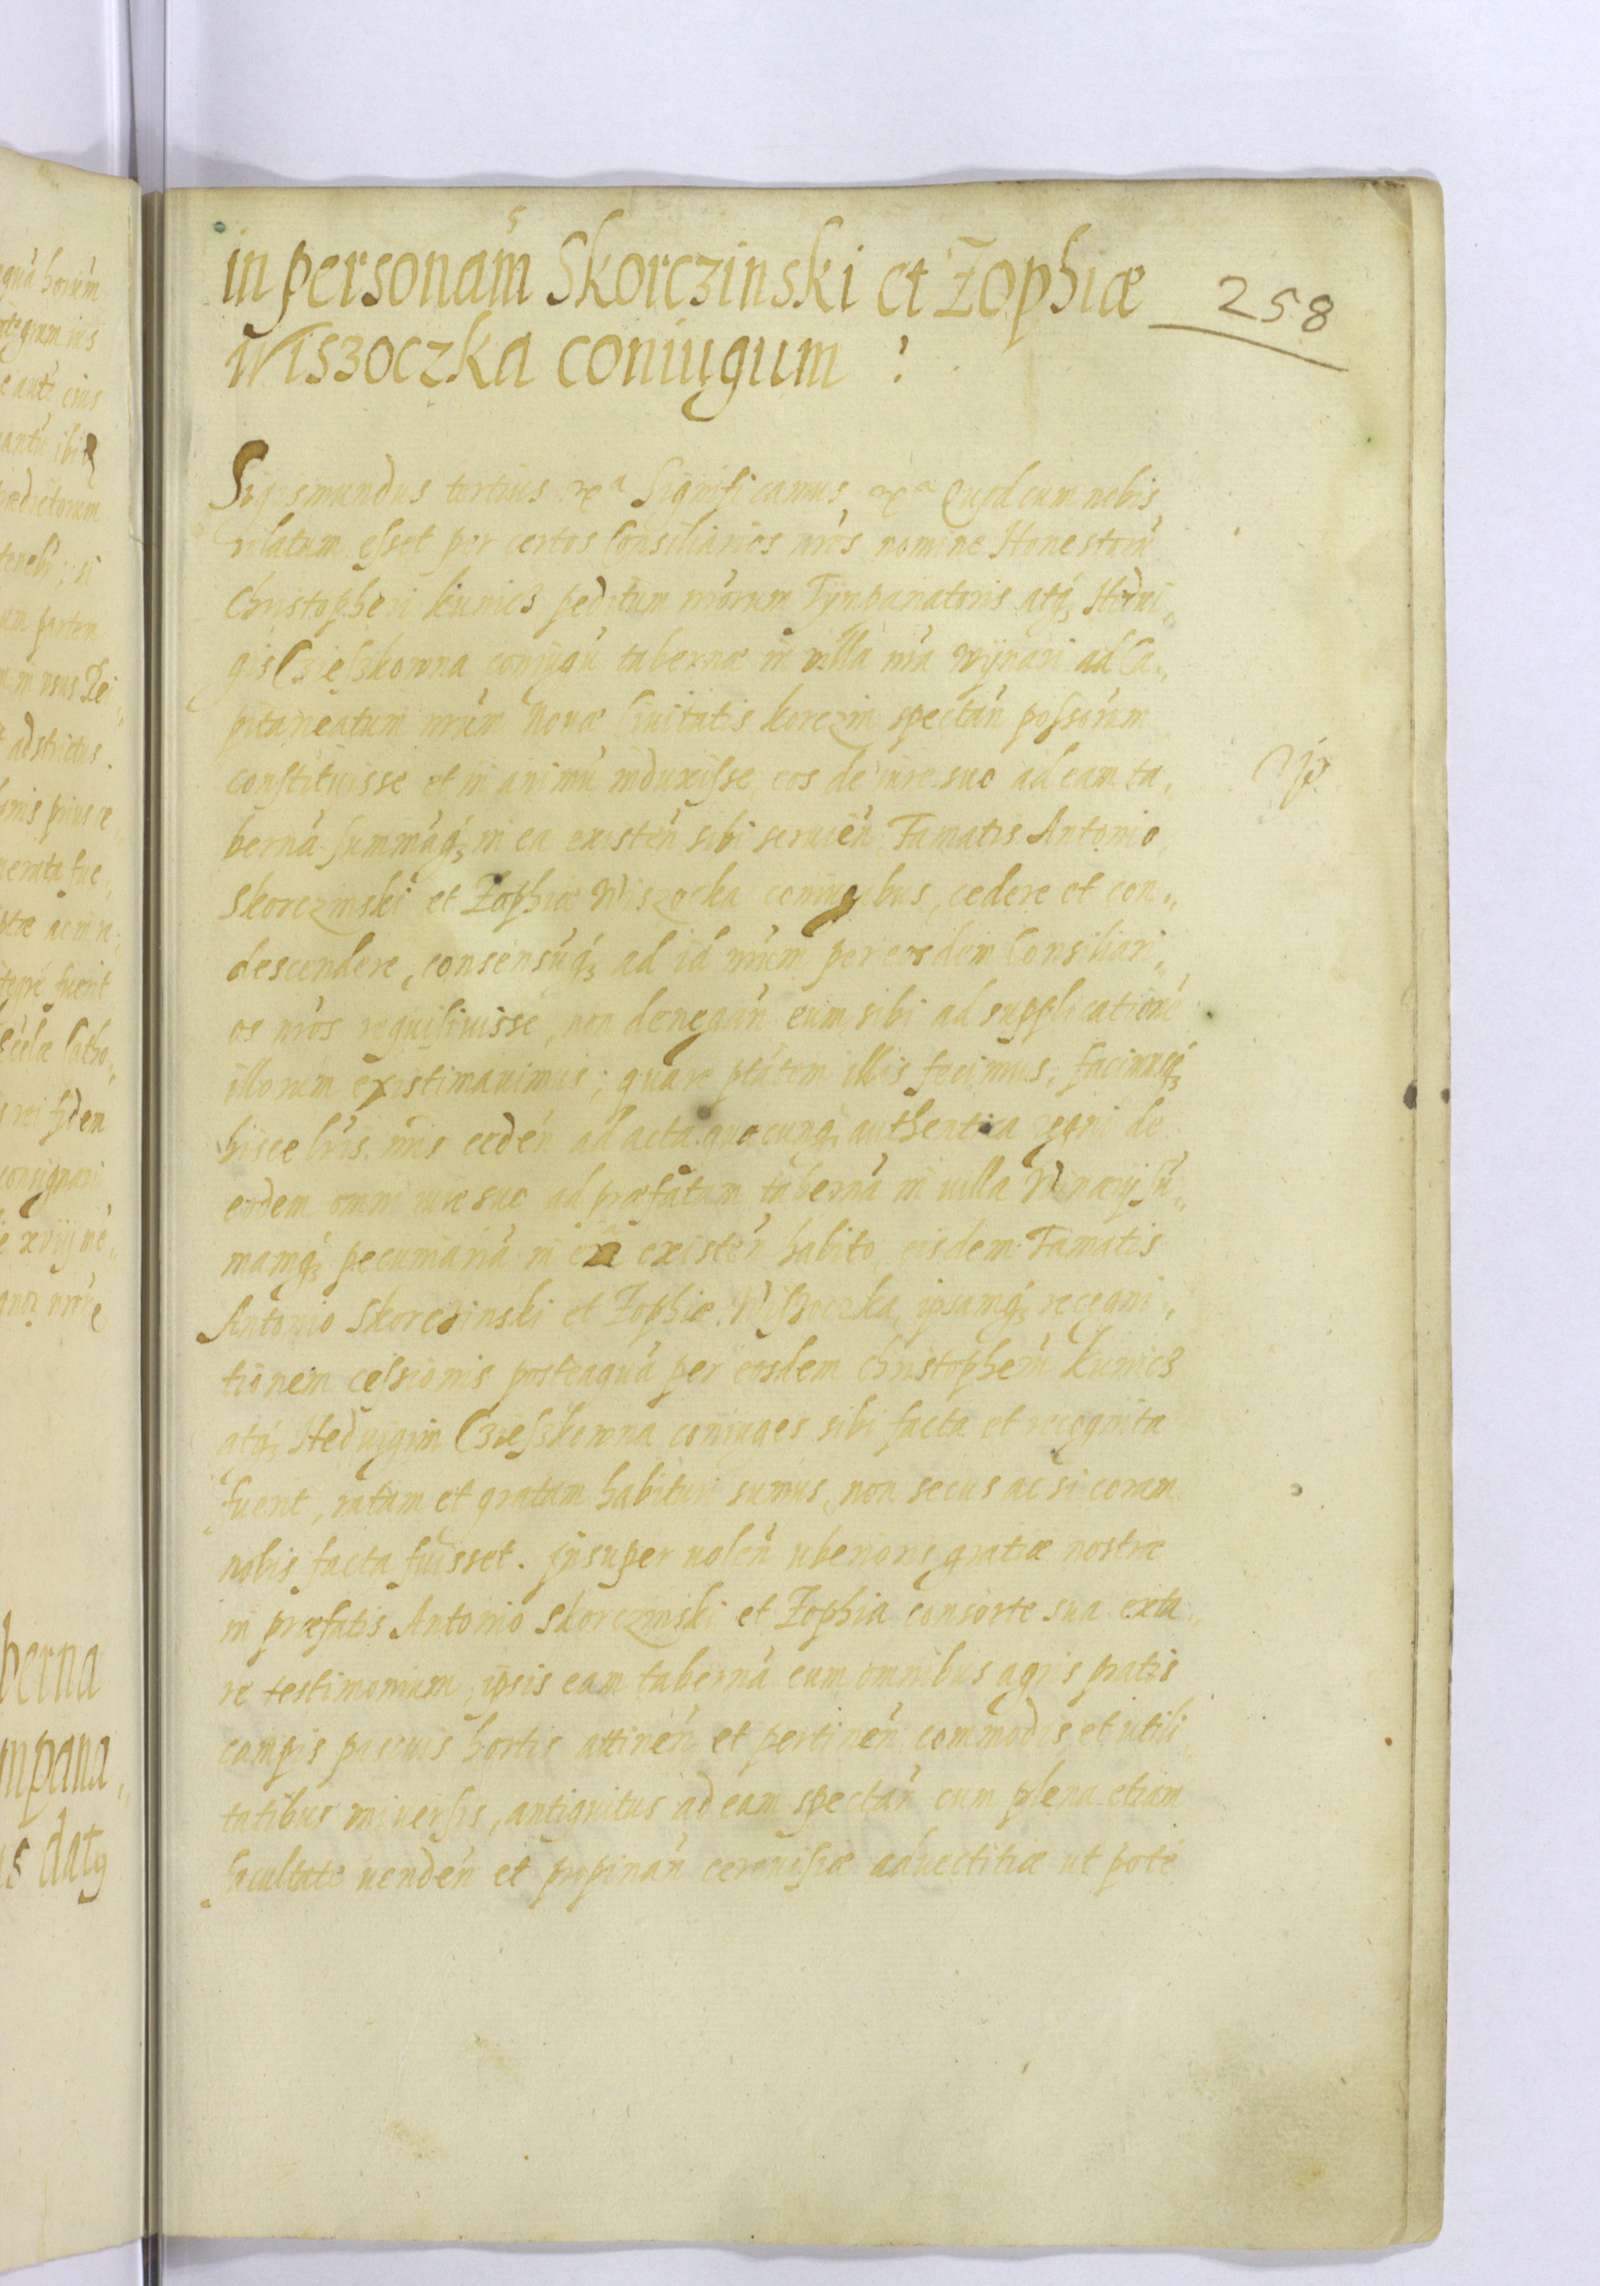 in personam Skorczinski et Zophiæ
Wiszoczka coniugum :
258
Sigismundus tertius etca Significamus etca Quod cum nobis
relatum esset per certos Consiliarios nr̃os, nomine Honestorũ
Christopheri Kunicz peditum nr̃orum Tympanatoris atq3 Hedui„
gis Czieszkowna coniugũ tabernæ in villa nr̃a Wynari ad Ca„
pitaneatum nr̃um Nouæ Ciuitatis Korczin spectan̄ possorũm
constituisse et in animũ induxisse, eos de iure suo ad eam ta„
bernã summãq3 in ea existen̄ sibi seruien̄ Famatis Antonio
Skorczinski et Zophiæ Wiszocka coniugibus, cedere et con„
descendere, consensũq3 ad id nr̃um per eosdem Consiliari„
os nr̃os requisiuisse, non denegan̄ eum sibi ad supplicationẽ
illorum existimauimus; quare ptãtem illis fecimus, facimusq3
hisce lr̃is nr̃is ceden̄ ad acta quæcunq3 authentica regni de
eodem omni iure suo ad præfatam tabernã in villa Winarij sũ„
mamq3 pecuniariã in ea existen̄ habito, eisdem Famatis
Antonio Skorczinski et Zophiæ Wiszoczka, ipsamq3 recogni„
tionem cessionis posteaquã per eosdem Christopherũ Kunicz
atq3 Heduigim Czieszkowna coniuges sibi facta et recognita
fuerit, ratam et gratam habituri sumus, non secus ac si coram
nobis facta fuisset. Insuper uolen̄ uberioris gratiæ nostræ
in præfatis Antonio Skorczinski et Zophia consorte sua exta„
re testimonium, ipsis eam tabernã cum omnibus agris pratis
campis pascuis hortis attinen̄ et pertinen̄ commodis et utili„
tatibus uniuersis, antiquitus ad eam spectan̄ cum plena etiam
facultate uenden̄ et propinan̄ cereuisiæ aduectitiæ ut potè